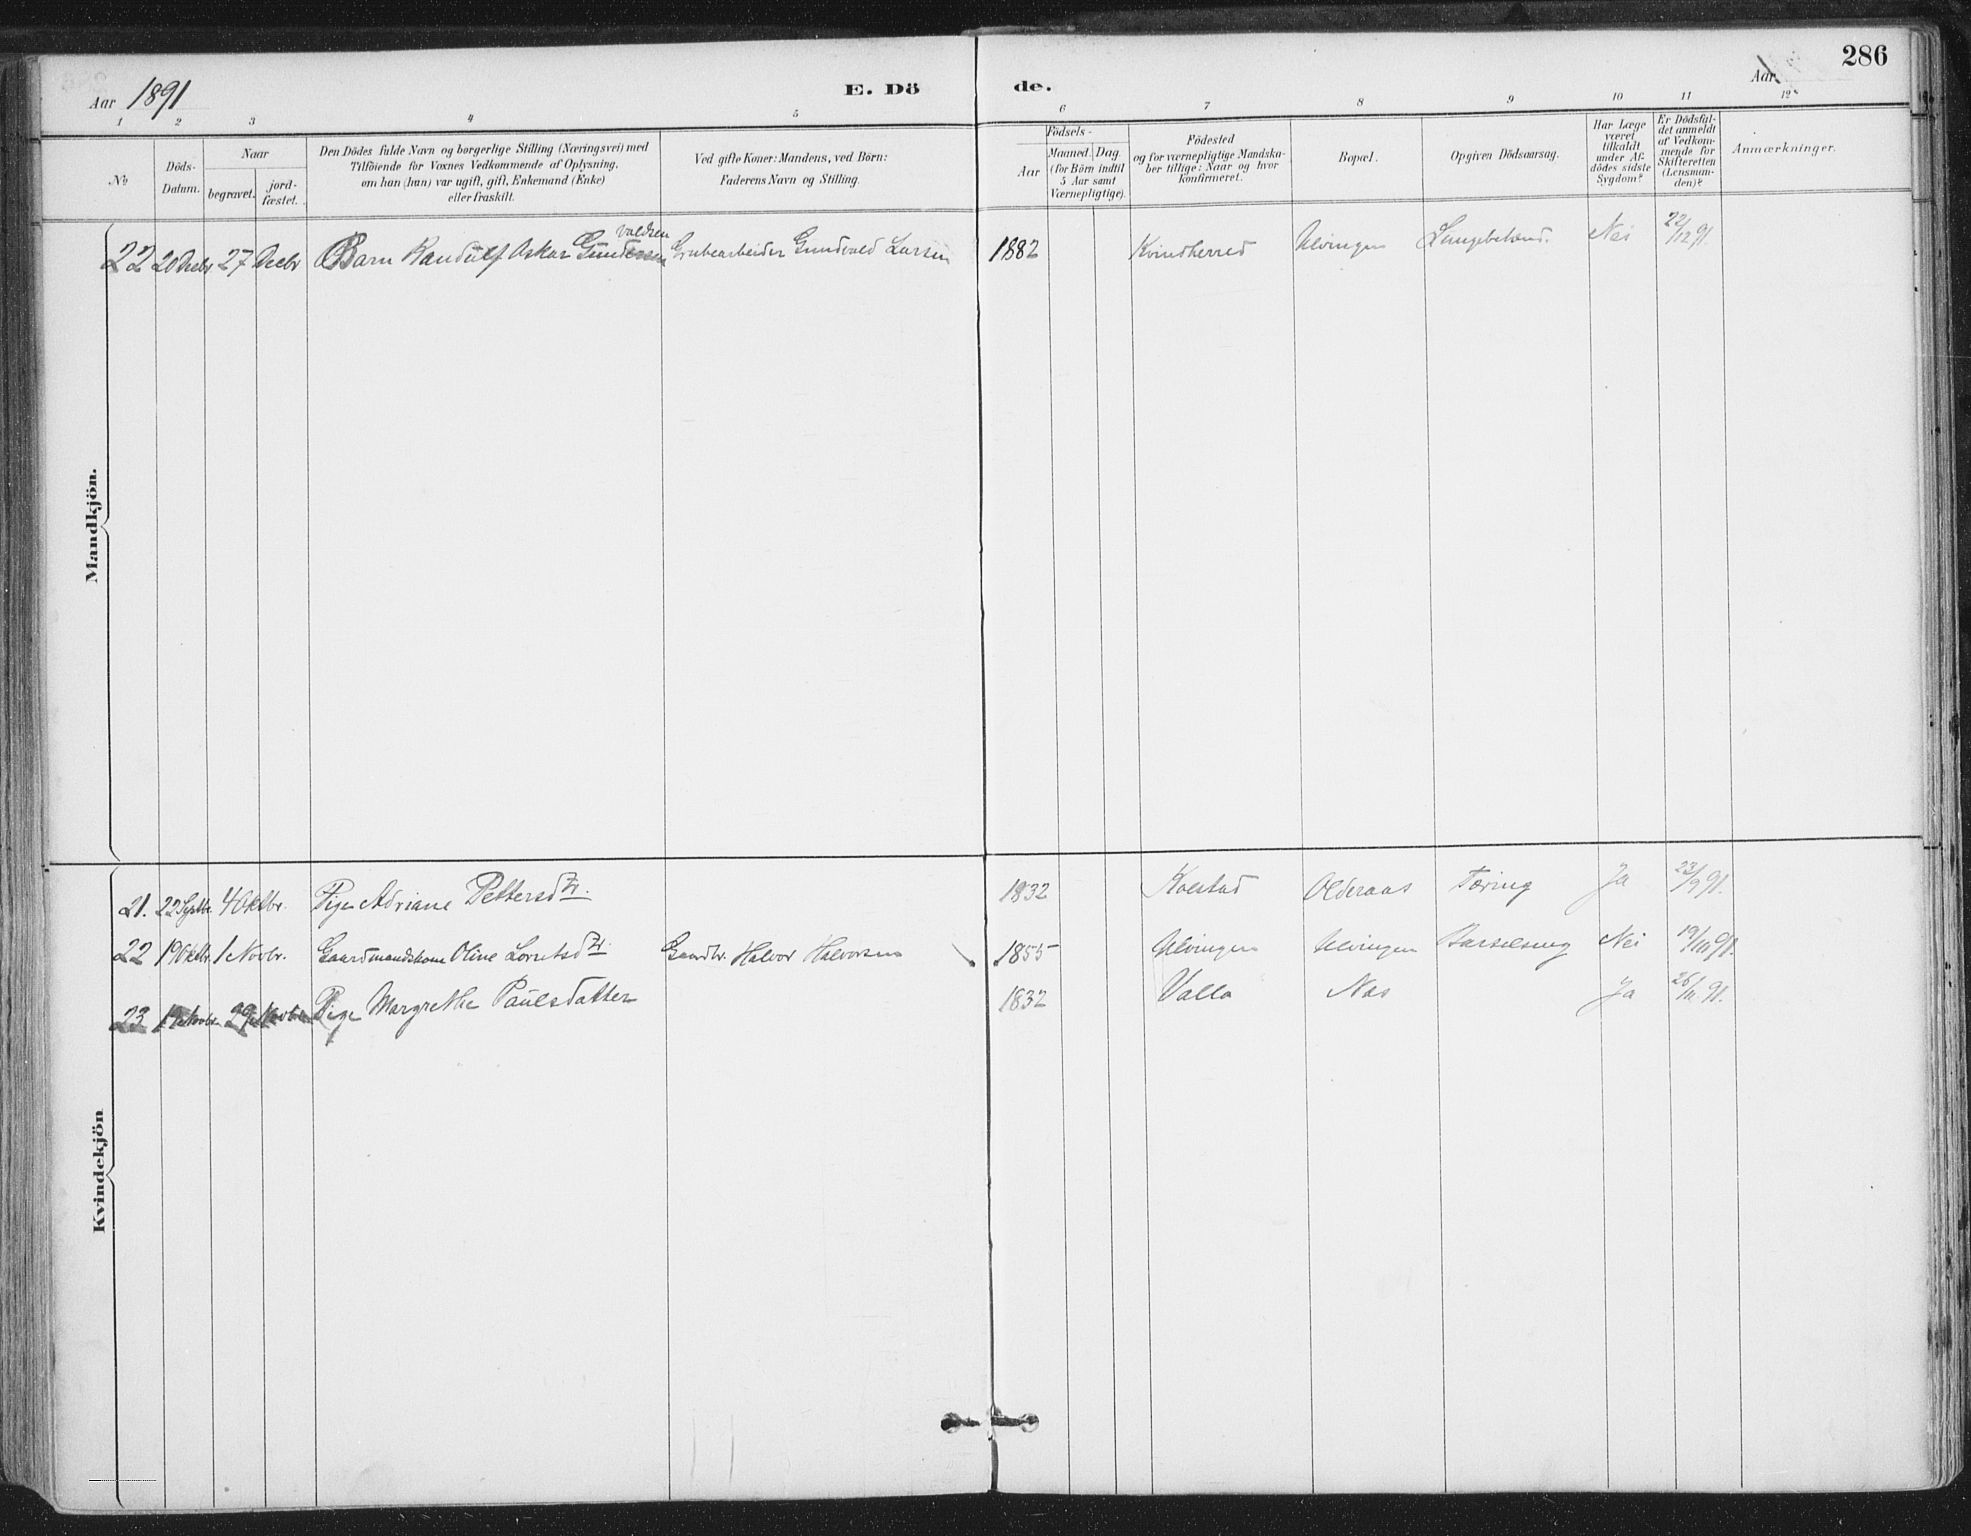 286
Aar 1891
E. Dö
de.
Aar
1 2 3 4 5 6 7 8 9 10 11 12
№
Döds-
Datum.
Naar
begravet.
jord-
fæstet.
Den Dödes fulde Navn og borgerlige Stilling (Næringsvei) med
Tilföiende for Voxnes Vedkommende af Oplysning,
om han (hun) var ugift, gift, Enkemand (Enke)
eller fraskilt.
Ved gifte Koner: Mandens, ved Börn:
Faderens Navn og Stilling.
Födsels-
Aar
Maaned. Dag
(for Börn indtil
5 Aar samt
Værnepligtige).
Födested
og for værnepligtige Mandska-
ber tillige: Naar og hvor
konfirmeret.
Bopæl.
Opgiven Dödsaarsag.
Har Læge
været
tilkaldt
under Af-
dödes sidste
Sygdom?
Er Dödsfal-
det anmeldt
af Vedkom-
mende for
Skifteretten
(Lensman-
den)?
Anmærkninger.
Mandkjön.
valdsen
22 20 Decbr 27 Decbr Barn Randulf Oskar Gundersen Grubearbeider Gundvald Larsen 1882 Kvindherred Ulvingen Lungebetænd. Nei 22/12 91.
Kvindekjön
21. 22 Septbr. 4 Oktbr. Pige Adriane Pettersdtr. 1832 Kolstad Olderaas Tæring Ja 23/9 91.
22 19 Oktbr. 1 Novbr. Gaardmandskone Oline Lorntsdtr. Gaardbr. Halvor Halvorsen 1855 Ulvingen Ulvingen Barselseng Nei 19/10 91.
23 19 Novbr. 29 Novbr. Pige Margrethe Paulsdatter 1832 Valla Nas Ja 26/11 91.